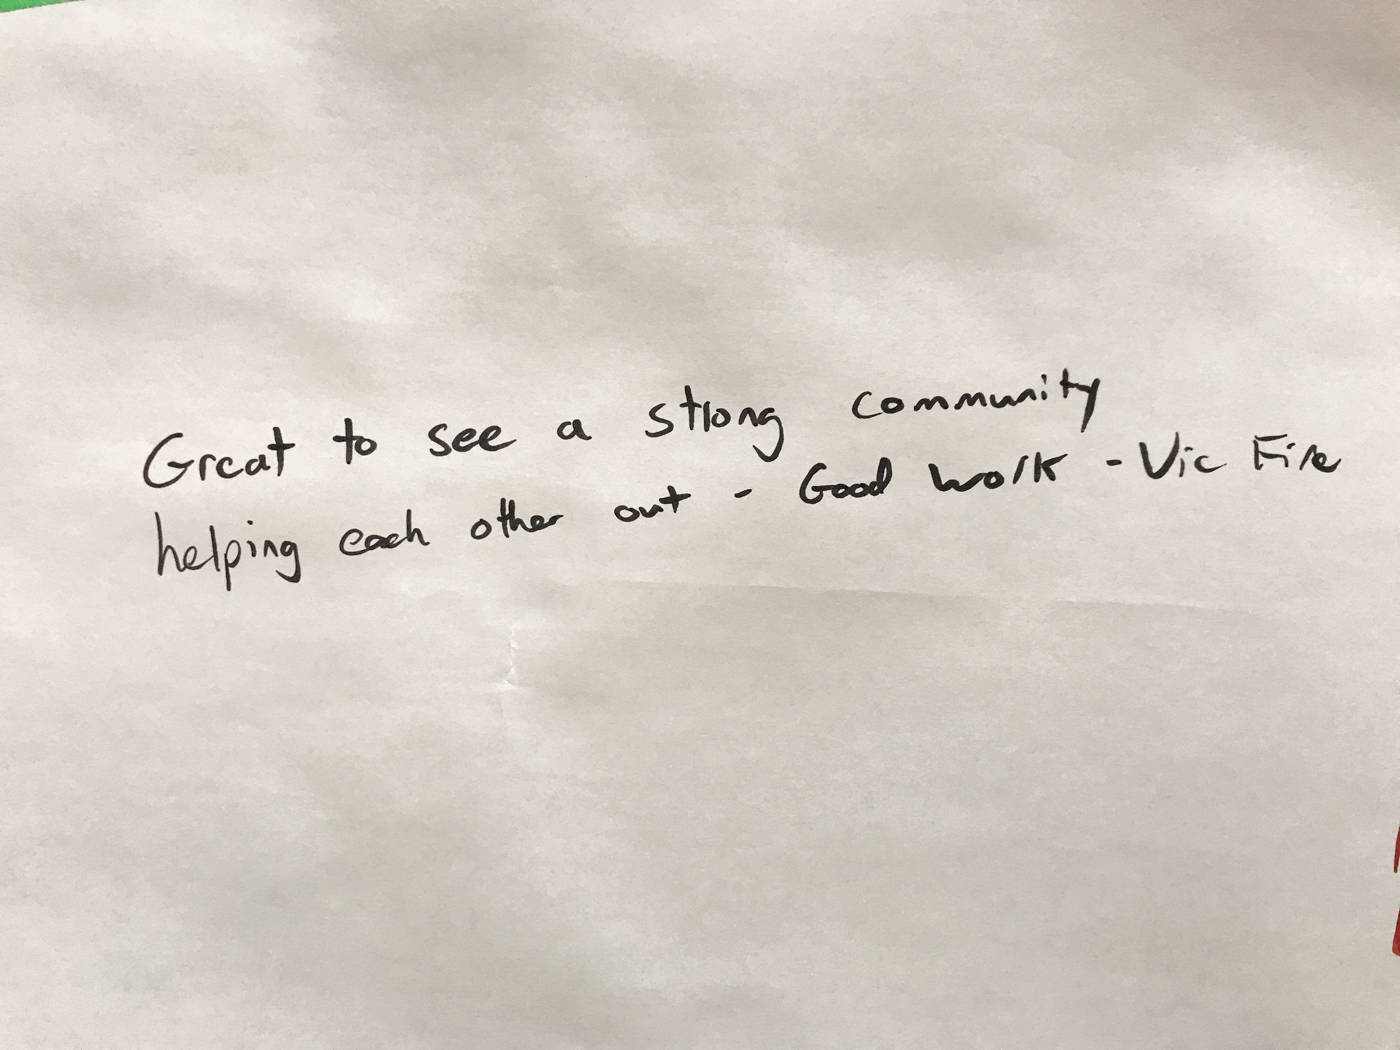 Great to see a strong community
helping each other out - Good work - Vic Fire